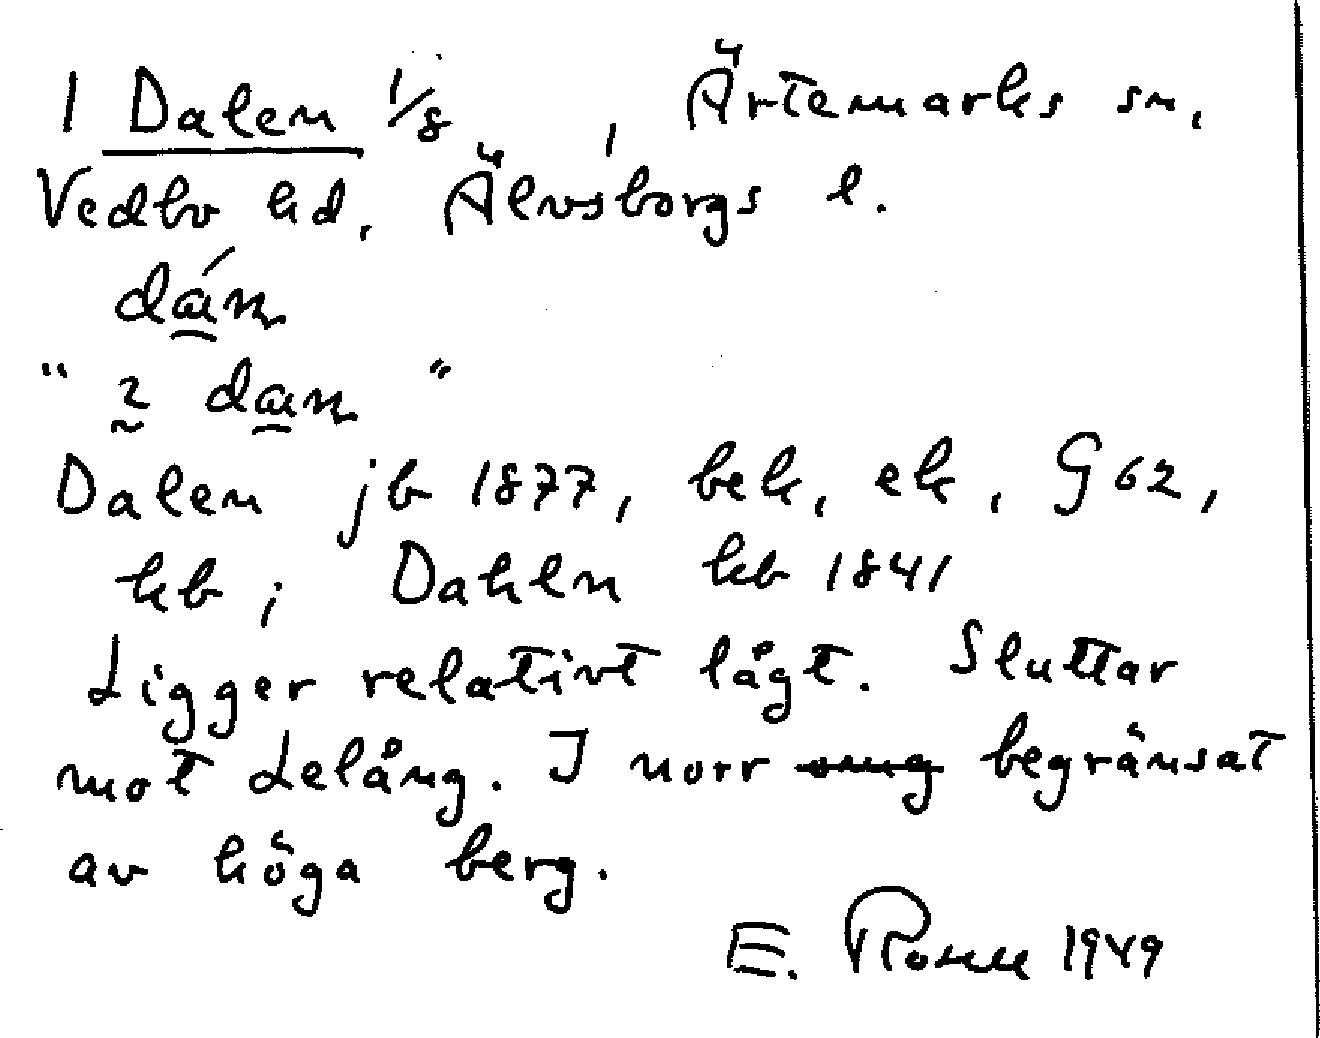 1 Dalen 1/8, Ärtemarks sn,
Vedbo hd, Älvsborgs l.
dán
" 2 dan "
Dalen jb 1877, bek, ek, G 62,
kb; Dahln kb 1841
Ligger relativt lågt. Sluttar
mot Lelång. I norr begränsat
av höga berg.
E. 1949